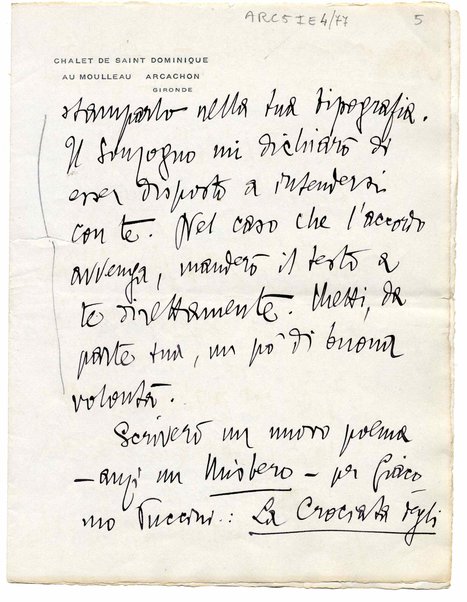 ARC5IE4/77
5
CHALET DE SAINT DOMINIQUE
AU MOULLEAU ARCACHON
GIRONDE
stamparlo nella tua tipografia.
Il Sonzogno mi dichiarò di
esser disposto a intendersi
con te. Nel caso che l'accordo
avvenga, manderò il testo a
te direttamente. Metti, da
parte tua, un po' di buona
volontà.
Scriverò un nuovo poema
— anzi un Mistero — per Giaco-
mo Puccini: La Crociata degli